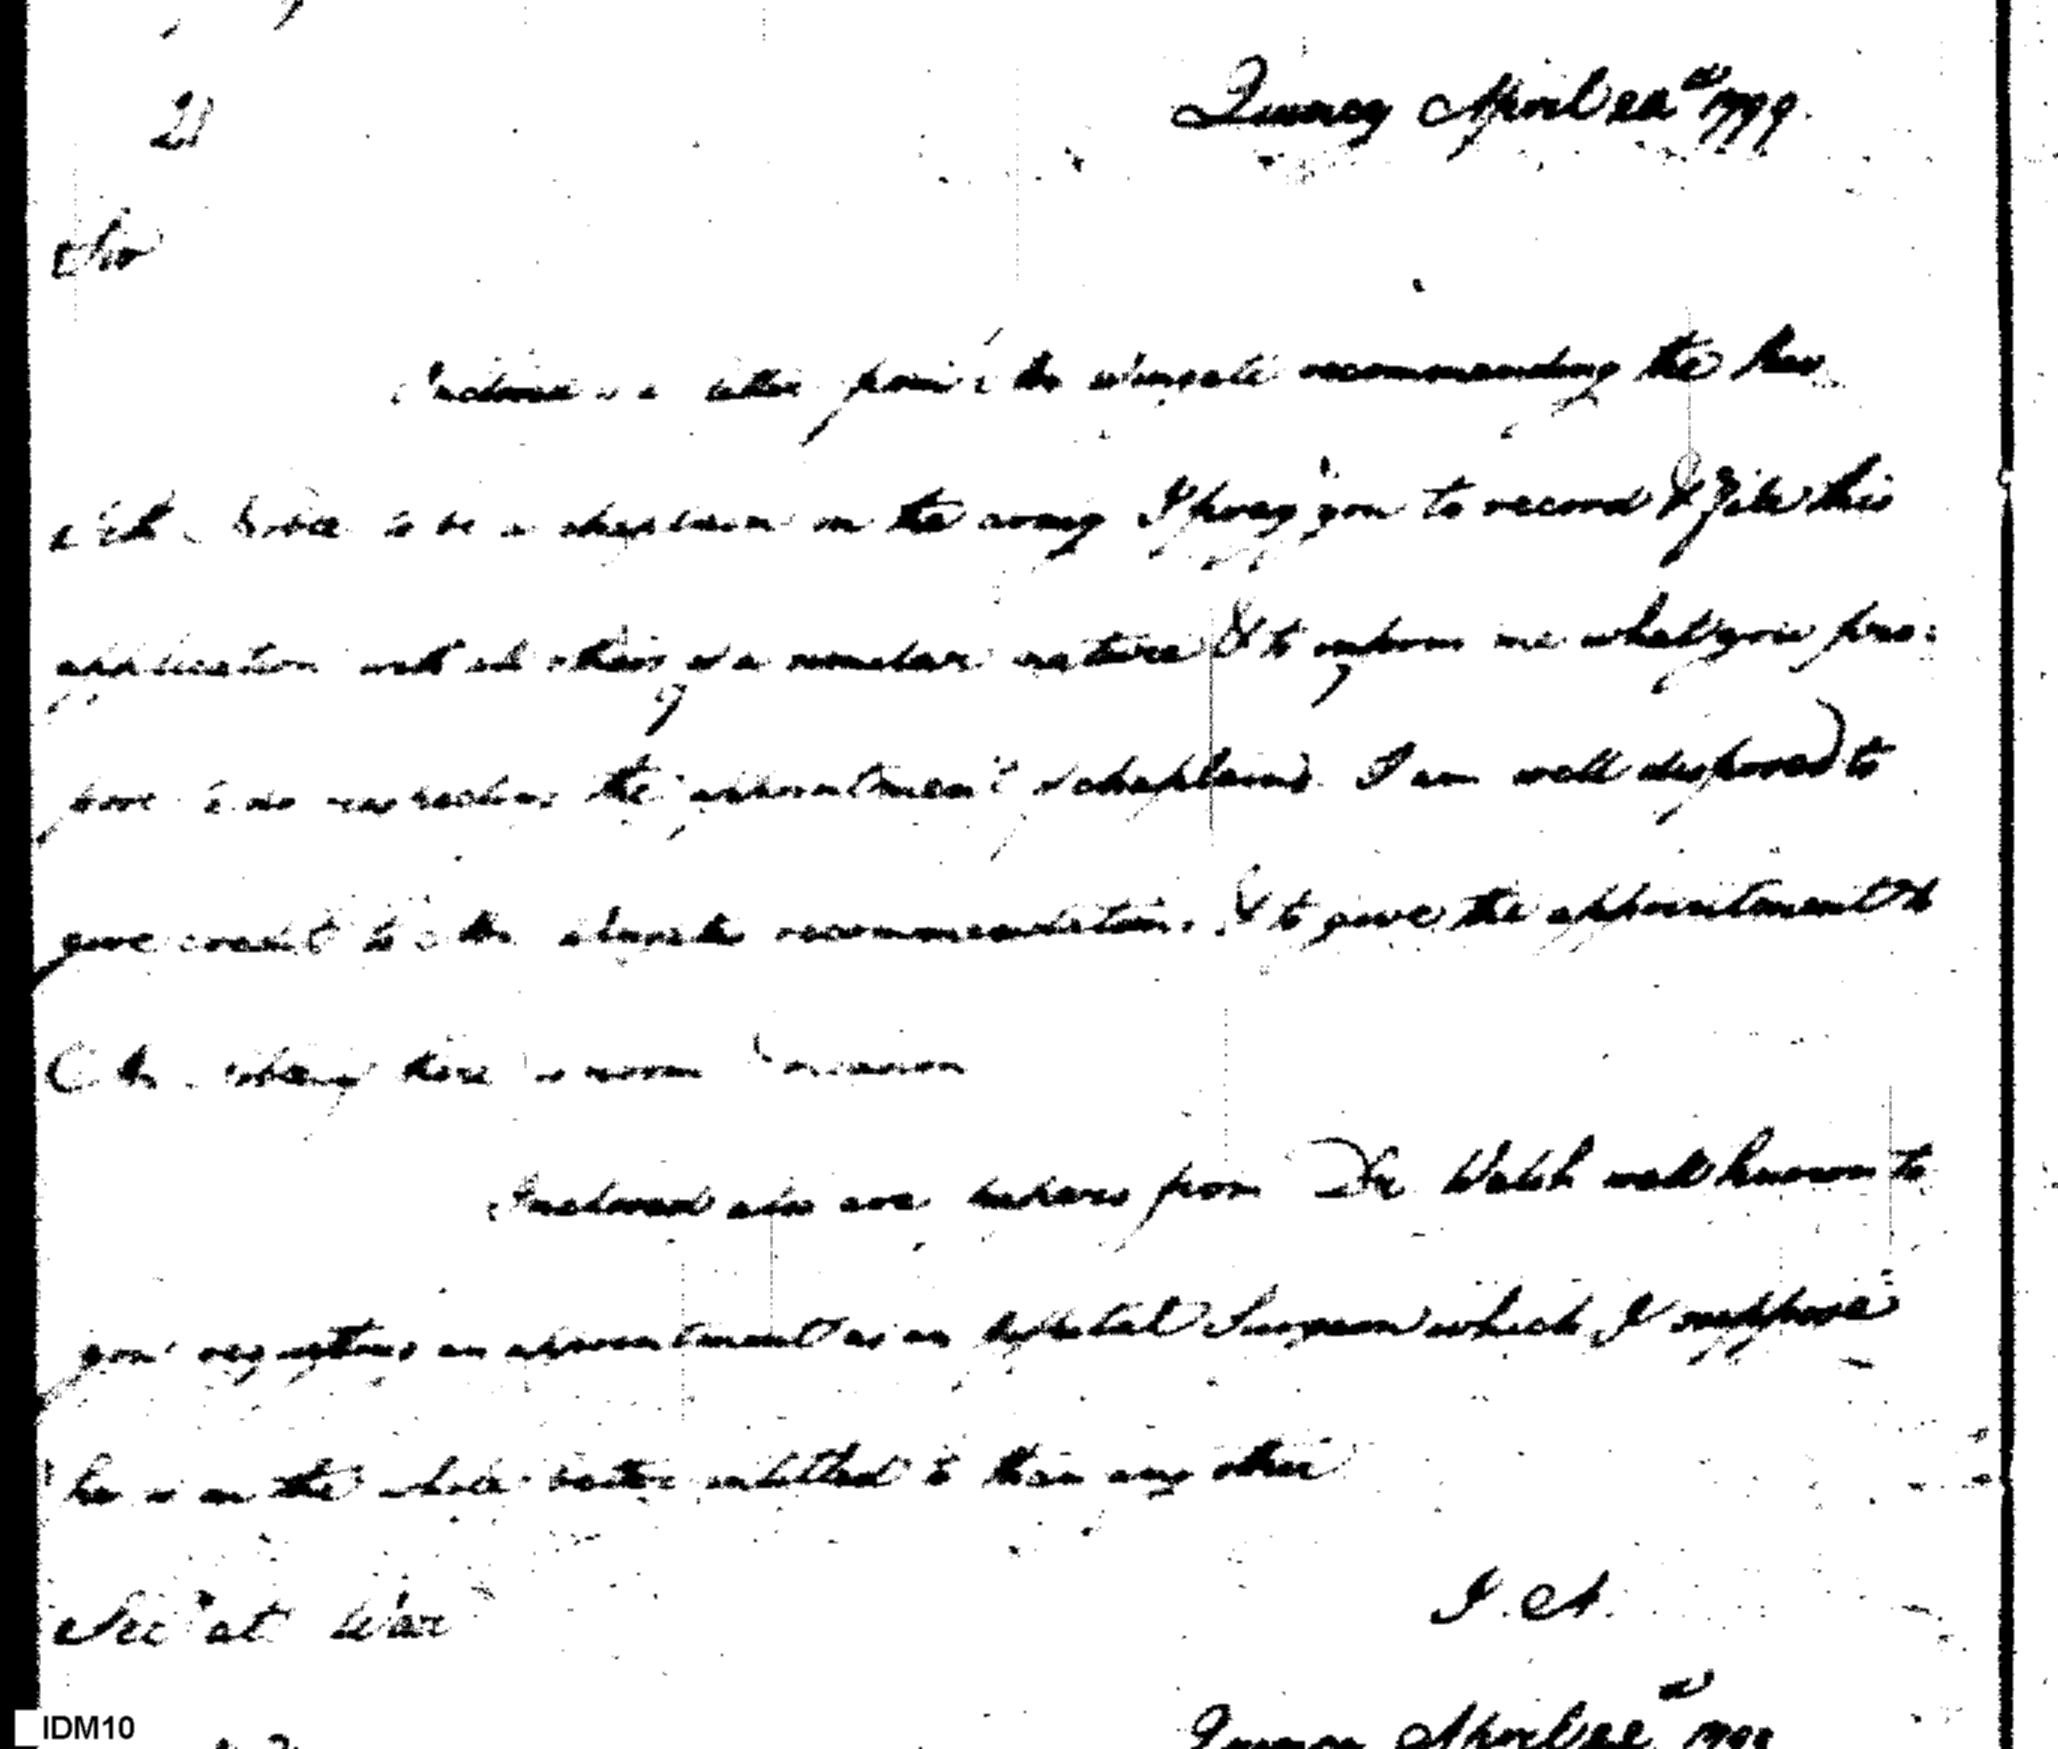 21
Quincy April 22d 1799.
Sir
Inclosed is a letter from recommending the Rev
to be a chaplain in the army I pray you to record & file this
application with all others of a similar nature & to inform me what you pro:
pose to do respecting the appointment of chaplains. I am well disposed to
give credit to recommendation, & to give the appointment to
there is room
Inclosed also are papers from Dr Welsh well known to
you requesting an appointment as an hospital Surgeon which I suppose
he is on the whole better entitled to than any other
J. A.
Sec at War
Quincy April 22d 1799
IDM10